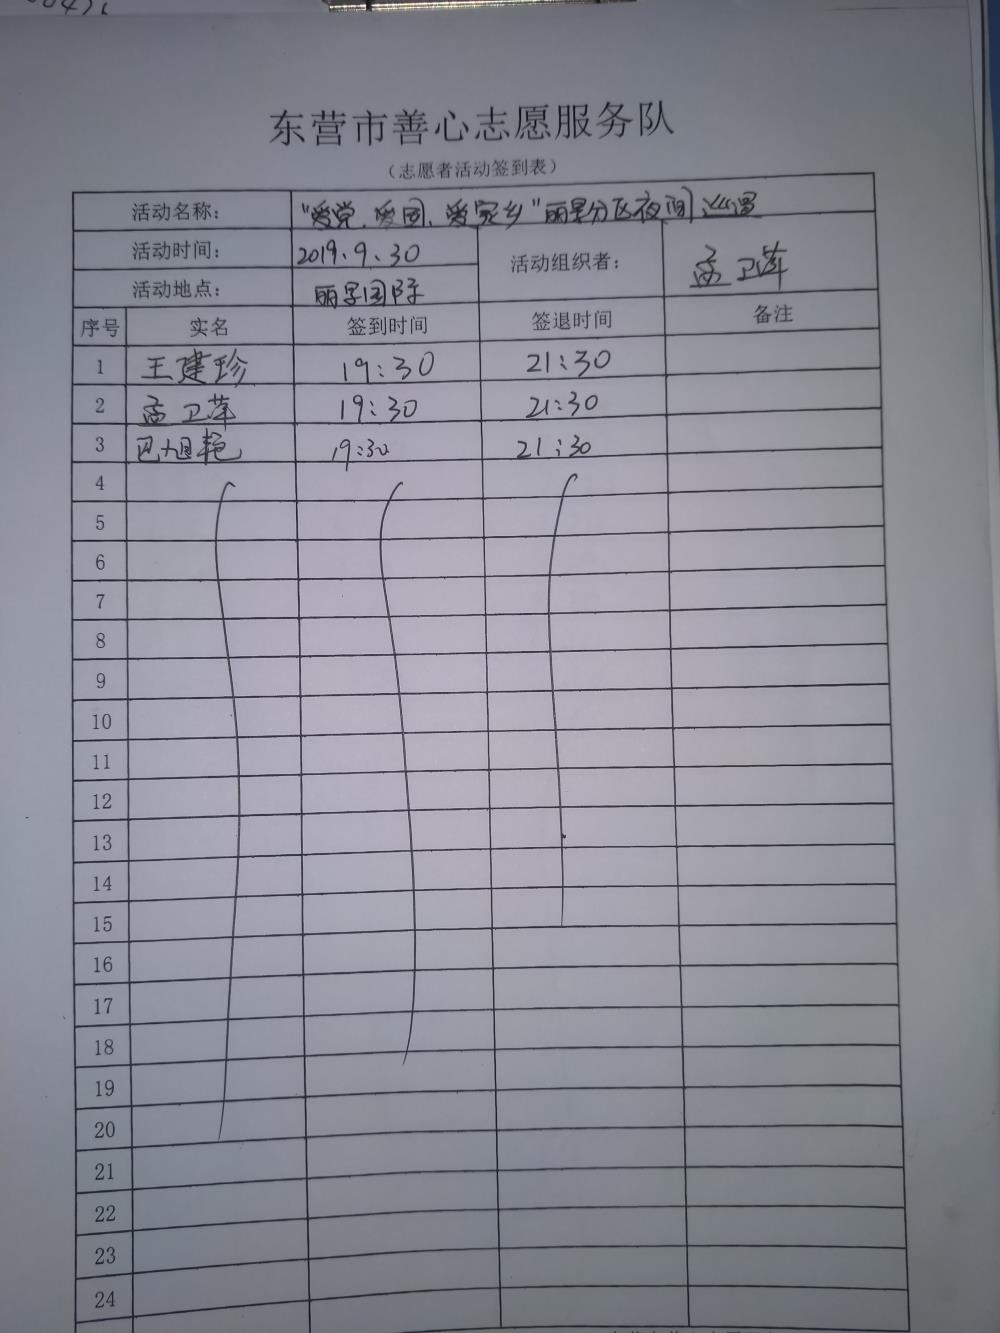 东营市善心志愿服务队
（志愿者活动签到表）
活动名称： “爱党、爱国、爱家乡”丽景分区夜间巡逻
活动时间： 2019.9.30 活动组织者： 孟卫萍
活动地点： 丽景国际
序号 实名 签到时间 签退时间 备注
1 王建珍 19:30 21:30
2 孟卫萍 19:30 21:30
3 巴旭艳 19:30 21:30
4
5
6
7
8
9
10
11
12
13
14
15
16
17
18
19
20
21
22
23
24